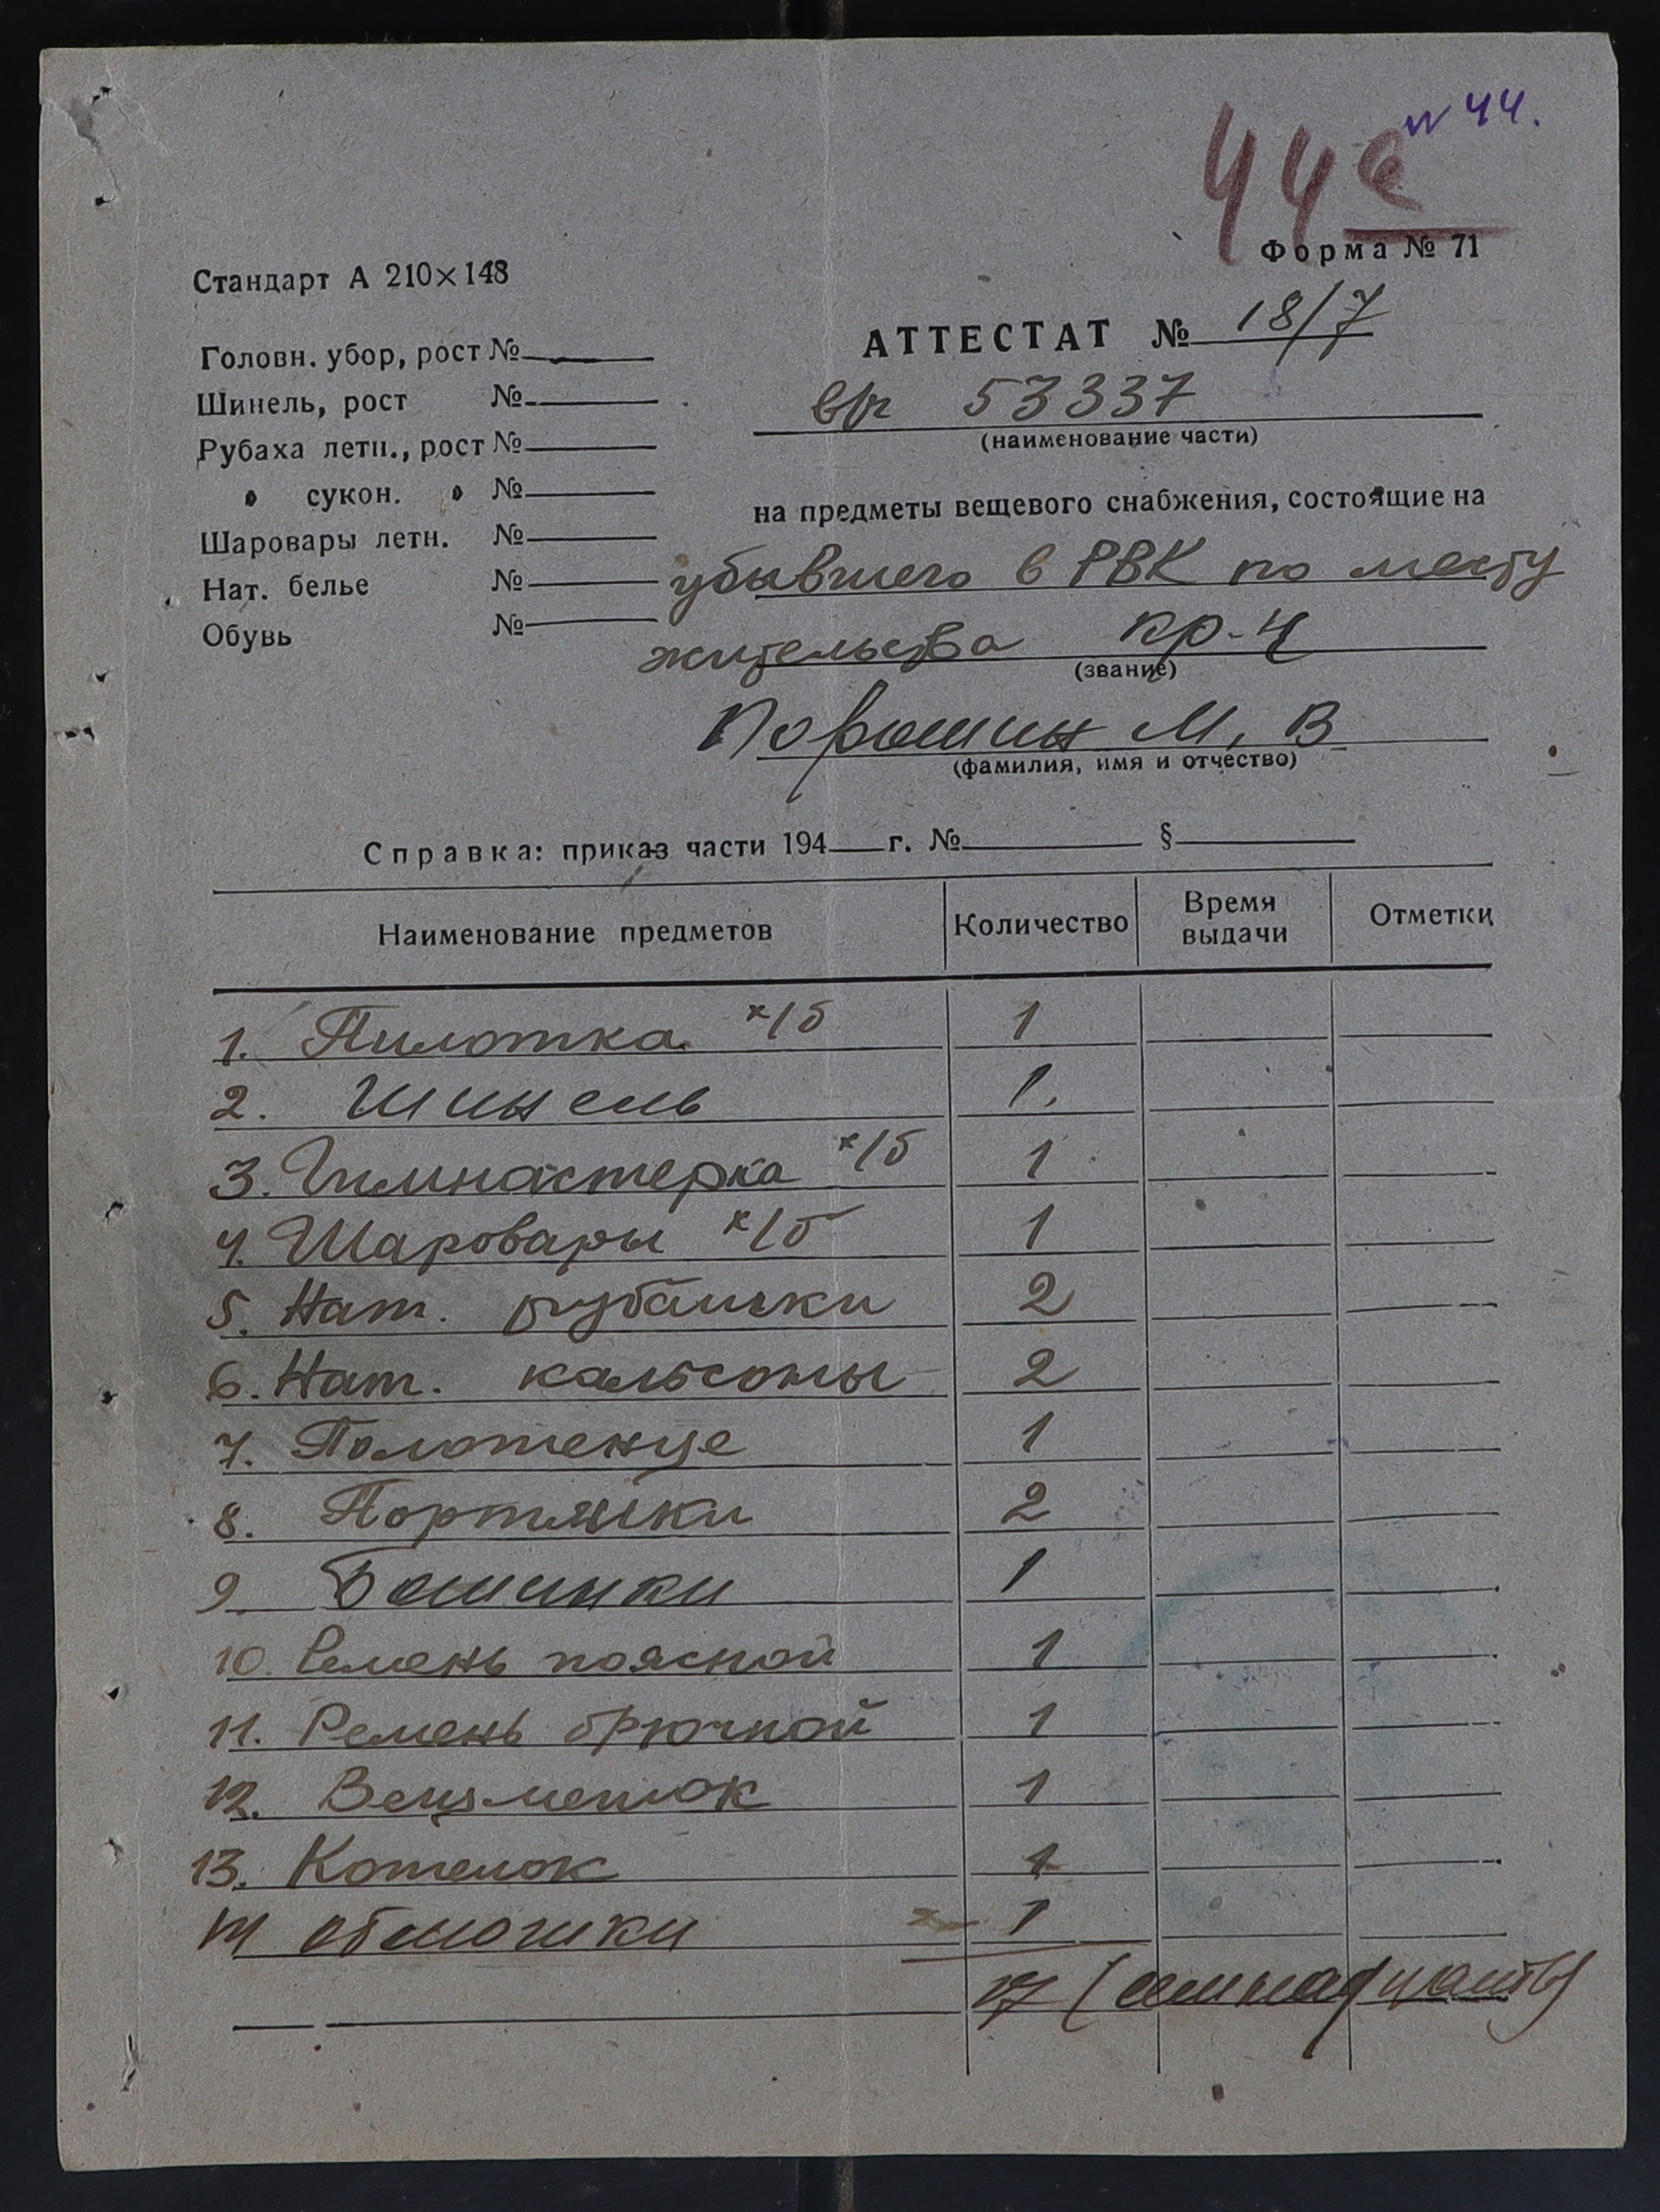 № 44.
44с
Форма № 71
Стандарт А 210×148
АТТЕСТАТ № 18/7
Головн. убор, рост №
Шинель, рост №
Рубаха летн., рост №
" сукон. " №
Шаровары летн. №
Нат. белье №
Обувь №
в/ч 53337
(наименование части)
на предметы вещевого снабжения, состоящие на
убывшего в РВК по месту
жительства кр-ц
(звание)
Порошин М. В
(фамилия, имя и отчество)
Справка: приказ части 194 г. № §
Наименование предметов Количество Время выдачи Отметки
1. Пилотка х/б 1
2. Шинель 1.
3. Гимнастерка х/б 1
4. Шаровары х/б 1
5. Нат. рубашки 2
6. Нат. кальсоны 2
7. Полотенце 1
8. Портянки 2
9. Ботинки 1
10. Ремень поясной 1
11. Ремень брючной 1
12. Вещмешок 1
13. Котелок 1
14 обмотки 1
17 (семнадцать)